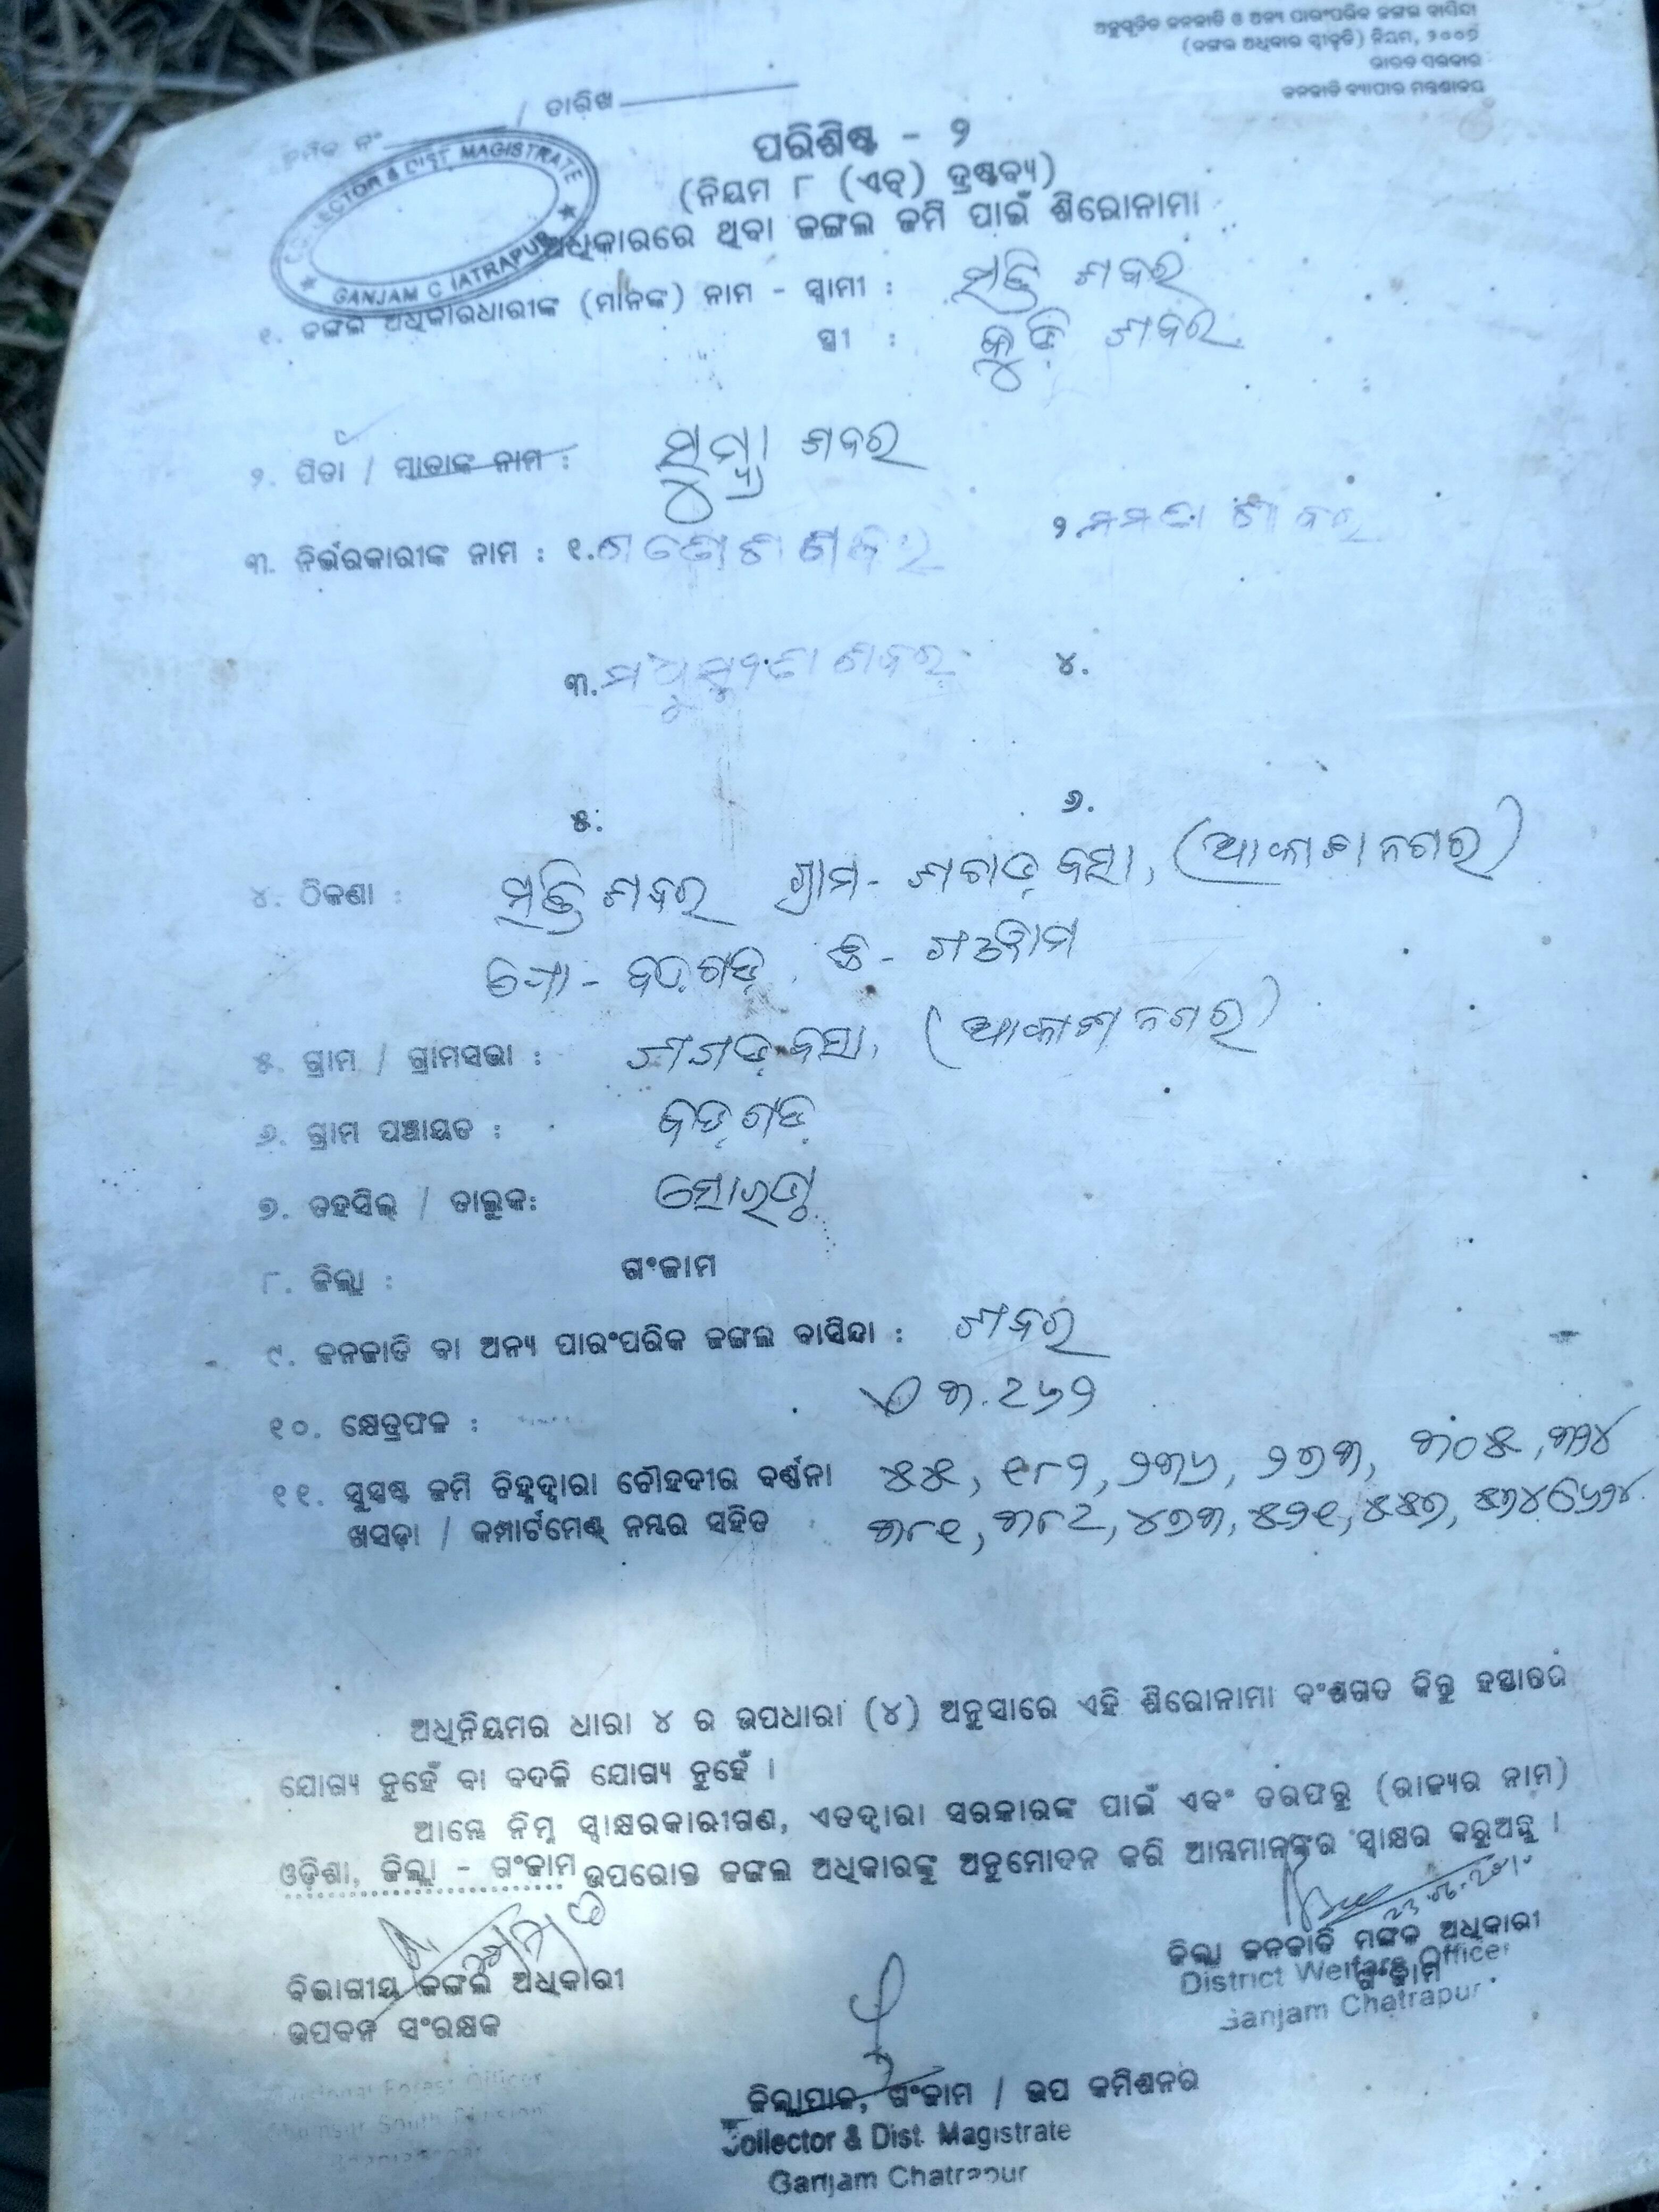 ଅନୁସୂଚିତ ଜନଜାତି ଓ ଅନ୍ୟ ପାରଂପରିକ ଜଙ୍ଗଲ ବାସିନ୍ଦା
(ଜଙ୍ଗଲ ଅଧିକାର ସ୍ୱୀକୃତି) ନିୟମ, ୨୦୦୭
ଭାରତ ସରକାର
ଜନଜାତି ବ୍ୟାପାର ମନ୍ତ୍ରଣାଳୟ
କ୍ରମିକ ନଂ / ତାରିଖ
COLLECTOR & DIST MAGISTRATE
GANJAM CHATRAPUR
ପରିଶିଷ୍ଟ - ୨
(ନିୟମ ୮ (ଏଚ୍) ଦ୍ରଷ୍ଟବ୍ୟ)
ଅଧିକାରରେ ଥିବା ଜଙ୍ଗଲ ଜମି ପାଇଁ ଶିରୋନାମା
୧. ଜଙ୍ଗଲ ଅଧିକାରଧାରୀଙ୍କ (ମାନଙ୍କ) ନାମ - ସ୍ୱାମୀ : ଶବର
ସ୍ତ୍ରୀ : ଶବର
୨. ପିତା / ମାତାଙ୍କ ନାମ : ଶବର
୩. ନିର୍ଭରକାରୀଙ୍କ ନାମ : ୧. ଶବର ୨. ଶବର
୩. ଶବର ୪.
୫. ୬.
୪. ଠିକଣା : ଶବର ଗ୍ରାମ - ଶଗଡ଼ ବସା, (ଆକାଶ ନଗର)
ପୋ - ବଡ଼ଗଡ଼, ଜି - ଗଞ୍ଜାମ
୫. ଗ୍ରାମ / ଗ୍ରାମସଭା : ଶଗଡ଼ ବସା, (ଆକାଶ ନଗର)
୬. ଗ୍ରାମ ପଞ୍ଚାୟତ : ବଡ଼ଗଡ଼
୭. ତହସିଲ୍ / ତାଲୁକ: ସୋରଡ଼ା
୮. ଜିଲ୍ଲା : ଗଂଜାମ
୯. ଜନଜାତି ବା ଅନ୍ୟ ପାରଂପରିକ ଜଙ୍ଗଲ ବାସିନ୍ଦା : ଶବର
୧୦. କ୍ଷେତ୍ରଫଳ : ୩.୯୬୨
୧୧. ସୁସ୍ପଷ୍ଟ ଜମି ଚିହ୍ନଦ୍ୱାରା ଚୌହଦୀର ବର୍ଣ୍ଣନା ୫୫, ୧୮୨, ୨୩୬, ୨୭୩, ୩୦୫, ୩୨୪
ଖସଡ଼ା / କମ୍ପାର୍ଟମେଣ୍ଟ୍ ନମ୍ବର ସହିତ ୩୮୧, ୩୮୯, ୪୭୩, ୫୨୧, ୫୫୭,
ଅଧିନିୟମର ଧାରା ୪ ର ଉପଧାରା (୪) ଅନୁସାରେ ଏହି ଶିରୋନାମା ବଂଶଗତ କିନ୍ତୁ ହସ୍ତାନ୍ତର
ଯୋଗ୍ୟ ନୁହେଁ ବା ବଦଳି ଯୋଗ୍ୟ ନୁହେଁ ।
ଆମ୍ଭେ ନିମ୍ନ ସ୍ୱାକ୍ଷରକାରୀଗଣ, ଏତଦ୍ୱାରା ସରକାରଙ୍କ ପାଇଁ ଏବଂ ତରଫରୁ (ରାଜ୍ୟର ନାମ)
ଓଡ଼ିଶା, ଜିଲ୍ଲା - ଗଂଜାମ ଉପରୋକ୍ତ ଜଙ୍ଗଲ ଅଧିକାରଙ୍କୁ ଅନୁମୋଦନ କରି ଆମ୍ଭମାନଙ୍କର ସ୍ୱାକ୍ଷର କରୁଅଛୁ ।
ବିଭାଗୀୟ ଜଙ୍ଗଲ ଅଧିକାରୀ
ଉପବନ ସଂରକ୍ଷକ
Divisional Forest Officer
Ghumsur South Division
ଜିଲ୍ଲା ଜନଜାତି ମଙ୍ଗଳ ଅଧିକାରୀ
ଗଂଜାମ
District Welfare Officer
Ganjam Chatrapur
ଜିଲ୍ଲାପାଳ, ଗଂଜାମ / ଉପ କମିଶନର
Collector & Dist. Magistrate
Ganjam Chatrapur